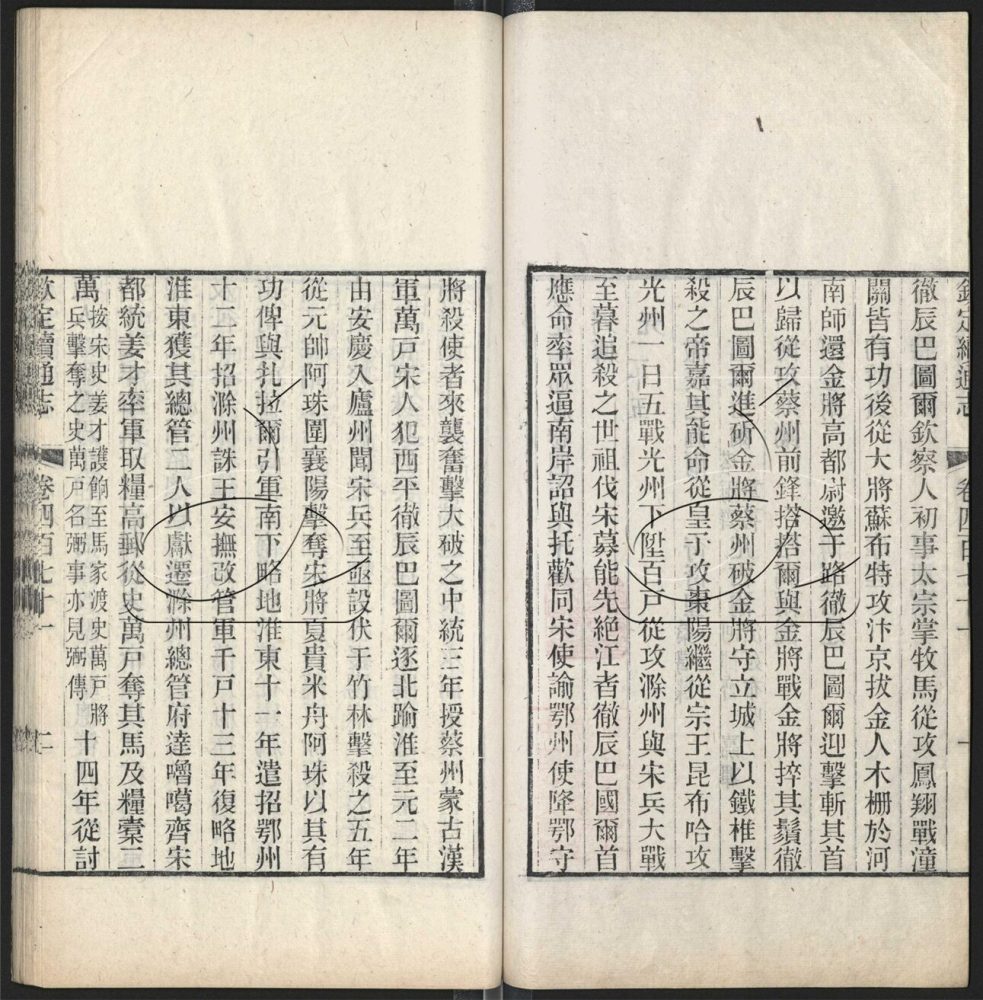 徹辰巴圖爾欽察人初事太宗掌牧馬從攻鳳翔戰潼
關皆有功後從大將蘇布特攻汴京拔金人木柵於河
南師還金將高都尉邀于路徹辰巴圖爾迎擊斬其首
以歸從攻蔡州前鋒搭搭爾與金將戰金將捽其鬚徹
辰巴圖爾進斫金將蔡州破金將守立城上以鐵椎擊
殺之帝嘉其能命從皇子攻棗陽繼從宗王昆布哈攻
光州一日五戰光州下陞百戶從攻滁州與宋兵大戰
至暮追殺之世祖伐宋募能先絕江者徹辰巴圖爾首
應命率眾逼南岸詔與托歡同宋使諭鄂州使降鄂守
將殺使者來襲奮擊大破之中統三年授蔡州蒙古漢
軍萬戶宋人犯西平徹辰巴圖爾逐北踰淮至元二年
由安慶入廬州聞宋兵至亟設伏于竹林擊殺之五年
從元帥阿珠圍襄陽擊奪宋將夏貴米舟阿珠以其有
功俾與扎拉爾引軍南下略地淮東十一年遣招鄂州
十二年招滁州誅王安撫改管軍千戶十三年復略地
淮東獲其總管二人以獻遷滁州總管府達嚕噶齊宋
都統姜才率軍取糧高郵從史萬戶奪其馬及糧橐二
萬按宋史姜才護餉至馬家渡史萬戶將兵擊奪之史萬戶名弼事亦見弼傳十四年從討
欽定續通志 卷四百七十一 二